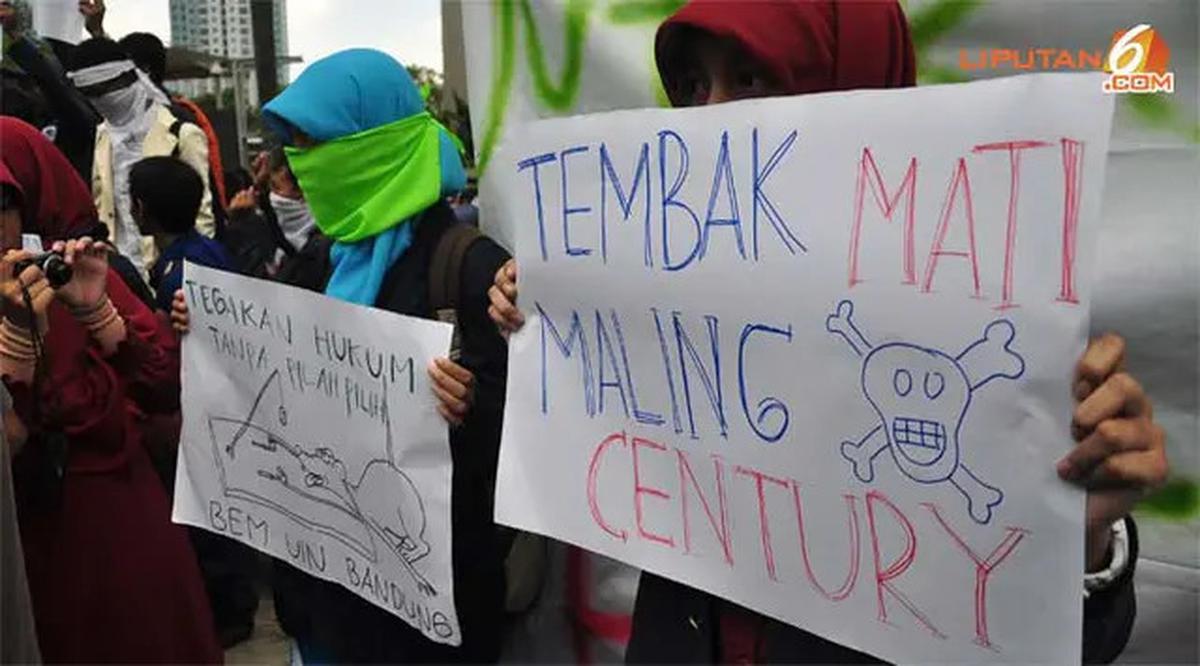 LIPUTAN 6
.COM
TEMBAK MATI
MALING
CENTURY
TEGAKAN HUKUM
TANPA PILAH PILIH
BEM UIN BANDUNG